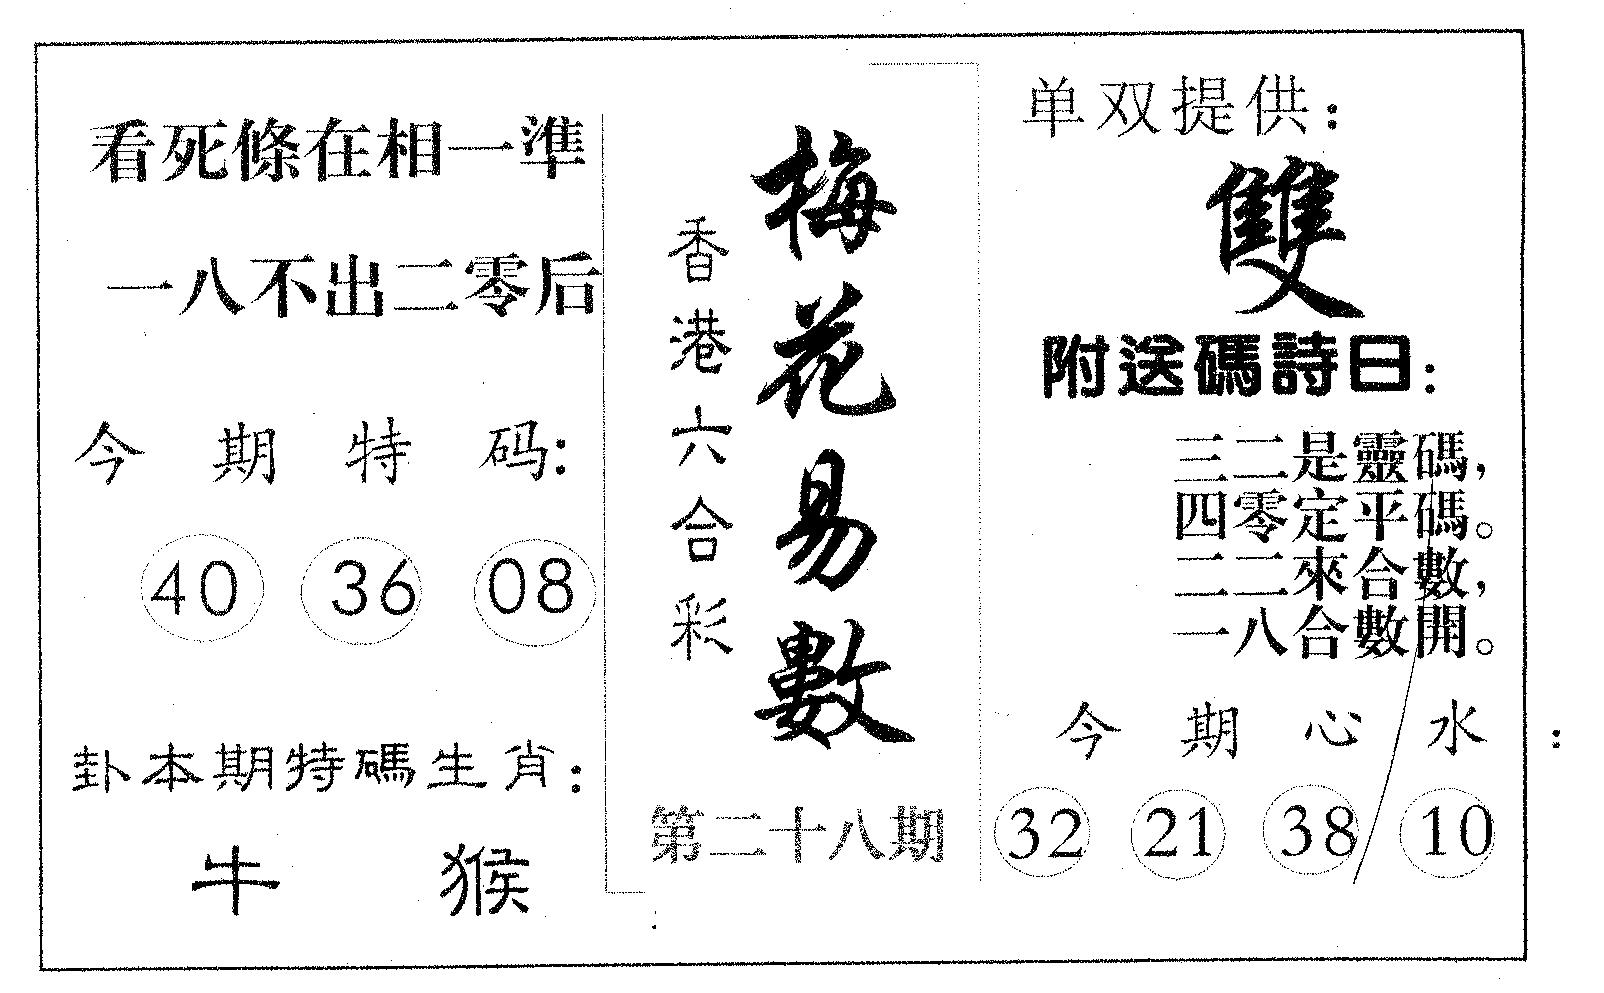 看死條在相一準
一八不出二零后
今期特码:
40 36 08
卦本期特碼生肖:
牛 猴
香港六合彩
梅花易數
第二十八期
单双提供:
雙
附送碼詩曰:
三二是靈碼,
四零定平碼。
二二來合數,
一八合數開。
今期心水:
32 21 38 10